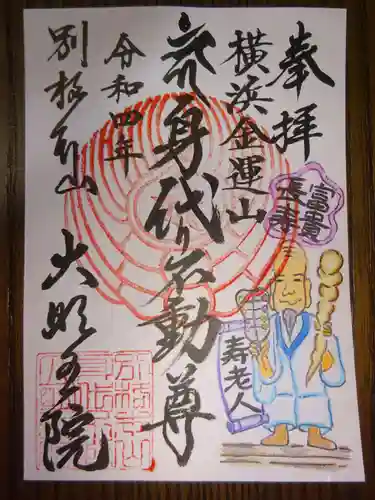 奉拝
横浜金運山
身代り不動尊
令和四年
別格本山
大明王院
富貴
長寿
寿老人